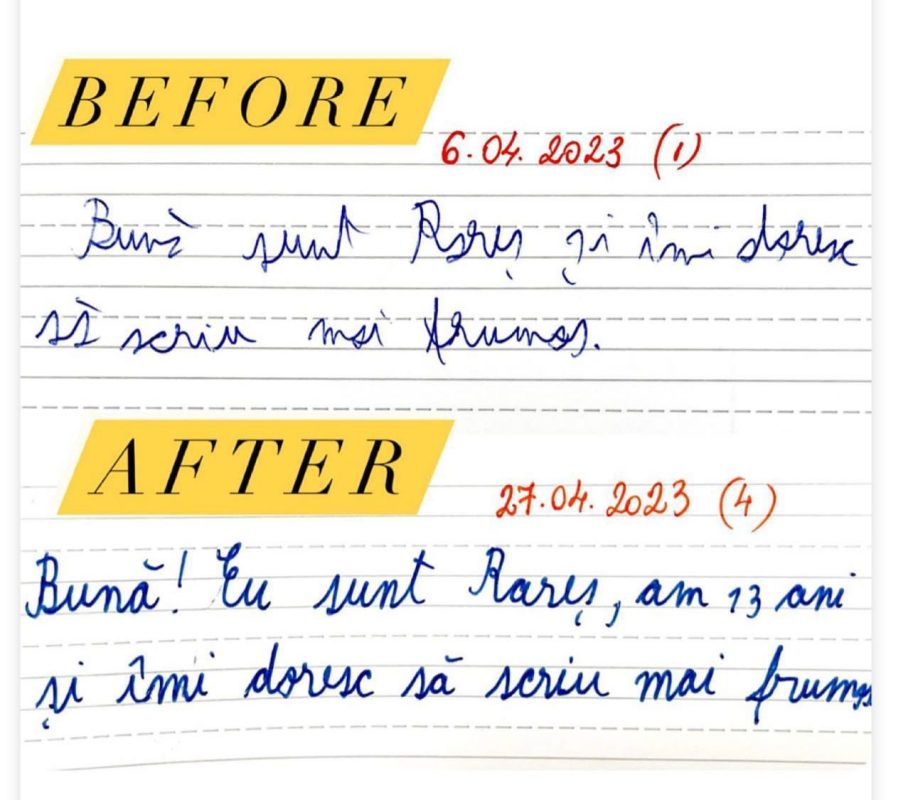 BEFORE
6.04.2023 (1)
Bună sunt Rareș și îmi doresc
să scriu mai frumos.
AFTER
27.04.2023 (4)
Bună! Eu sunt Rareș, am 13 ani
și îmi doresc să scriu mai frumos